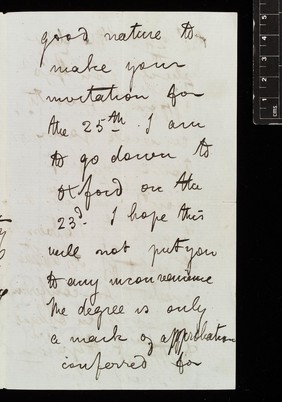 good nature to
make your
invitation for
the 25th. I am
to go down to
Oxford on the
23d. I hope this
will not put you
to any inconvenience
The degree is only
a mark of approbation
conferred for
5
4
3
2
1
cms